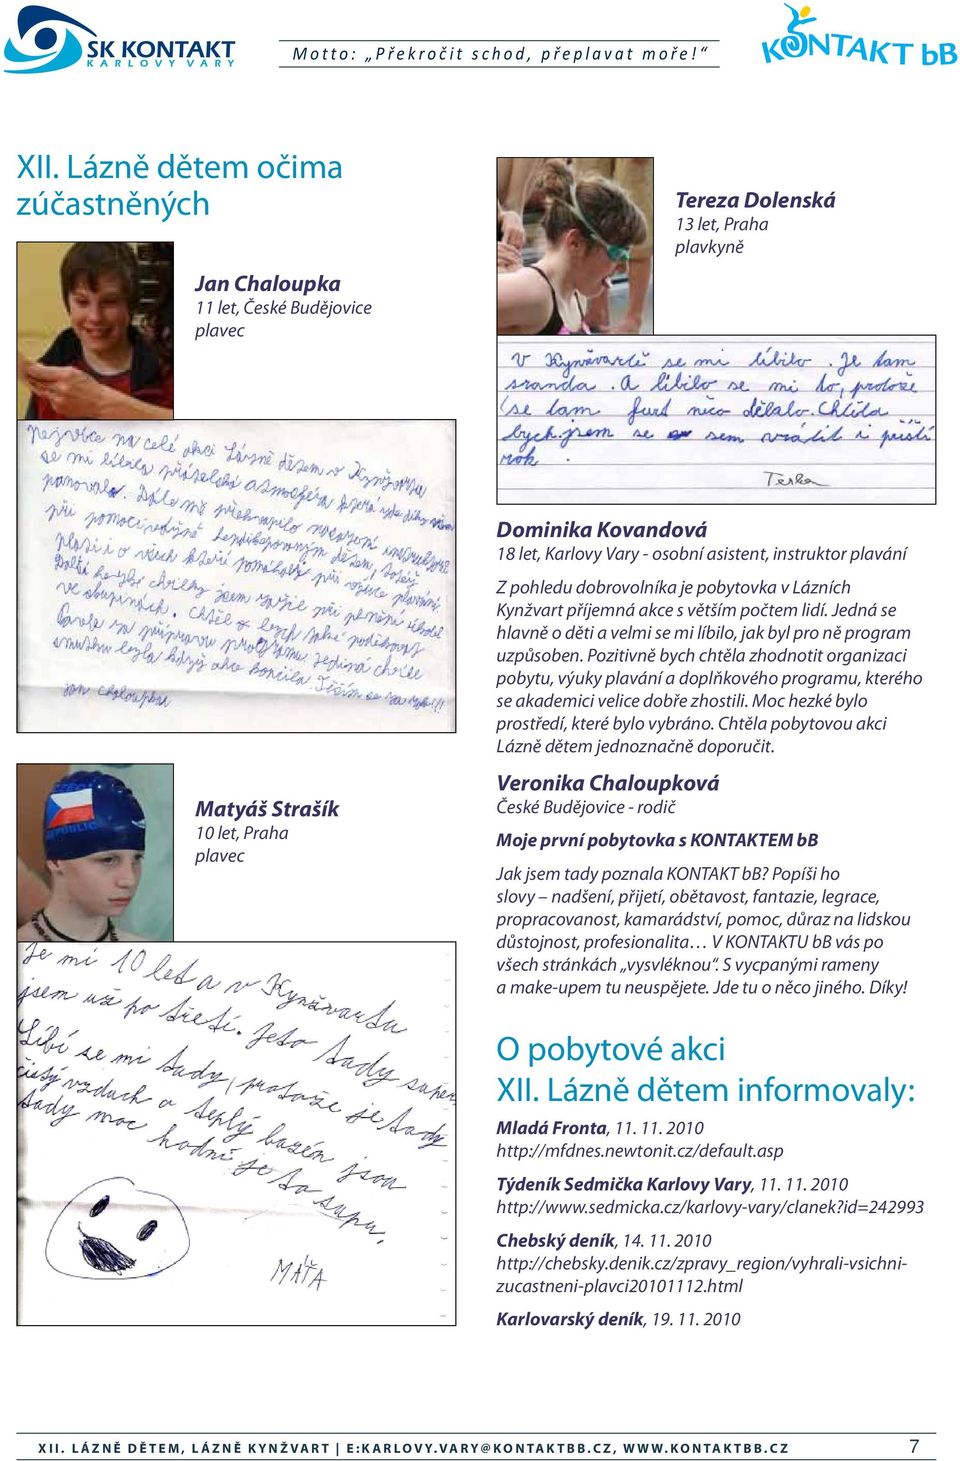 SK KONTAKT
KARLOVY VARY
Motto: „Překročit schod, přeplavat moře! “
KONTAKT bB
XII. Lázně dětem očima
zúčastněných
Jan Chaloupka
11 let, České Budějovice
plavec
Nejvíce na celé akci Lázně dětem v Kynžvartu
se mi líbila přátelská atmosféra která vždy
panovala. Dále mě překvapilo nasazení instruktorů
při pomoci
plasti i o všech kteří pomáhali při výuce plavání.
Další hezké chvilky jsem zažil při plnění úkolů
ve skupinkách. Chtěl bych také poděkovat
za přípravu programu. Jediná chvíle
smutem byla když akce končila Těším se za rok!!!
Jan Chaloupka
Matyáš Strašík
10 let, Praha
plavec
REPUBLIC
Je mi 10 let a v Kynžvartu
jsem už po třetí. Jeto tady super
Líbí se mi tady, protože je tady
čistý vzduch a teplý bazén jsou
tady moc hodní je to supr.
MAŤA
Tereza Dolenská
13 let, Praha
plavkyně
V Kynžvartě se mi líbilo. Je tam
sranda. A líbilo se mi to, protože
se tam furd něco dělalo. Chtěla
bych jsem se sem vrátit i příští
rok.
Terka
Dominika Kovandová
18 let, Karlovy Vary - osobní asistent, instruktor plavání
Z pohledu dobrovolníka je pobytovka v Lázních
Kynžvart příjemná akce s větším počtem lidí. Jedná se
hlavně o děti a velmi se mi líbilo, jak byl pro ně program
uzpůsoben. Pozitivně bych chtěla zhodnotit organizaci
pobytu, výuky plavání a doplňkového programu, kterého
se akademici velice dobře zhostili. Moc hezké bylo
prostředí, které bylo vybráno. Chtěla pobytovou akci
Lázně dětem jednoznačně doporučit.
Veronika Chaloupková
České Budějovice - rodič
Moje první pobytovka s KONTAKTEM bB
Jak jsem tady poznala KONTAKT bB? Popíši ho
slovy – nadšení, přijetí, obětavost, fantazie, legrace,
propracovanost, kamarádství, pomoc, důraz na lidskou
důstojnost, profesionalita… V KONTAKTU bB vás po
všech stránkách „vysvléknou“. S vycpanými rameny
a make-upem tu neuspějete. Jde tu o něco jiného. Díky!
O pobytové akci
XII. Lázně dětem informovaly:
Mladá Fronta, 11. 11. 2010
http://mfdnes.newtonit.cz/default.asp
Týdeník Sedmička Karlovy Vary, 11. 11. 2010
http://www.sedmicka.cz/karlovy-vary/clanek?id=242993
Chebský deník, 14. 11. 2010
http://chebsky.denik.cz/zpravy_region/vyhrali-vsichni-
zucastneni-plavci20101112.html
Karlovarský deník, 19. 11. 2010
XII. LÁZNĚ DĚTEM, LÁZNĚ KYNŽVART | E:KARLOVY.VARY@KONTAKTBB.CZ, WWW.KONTAKTBB.CZ 7